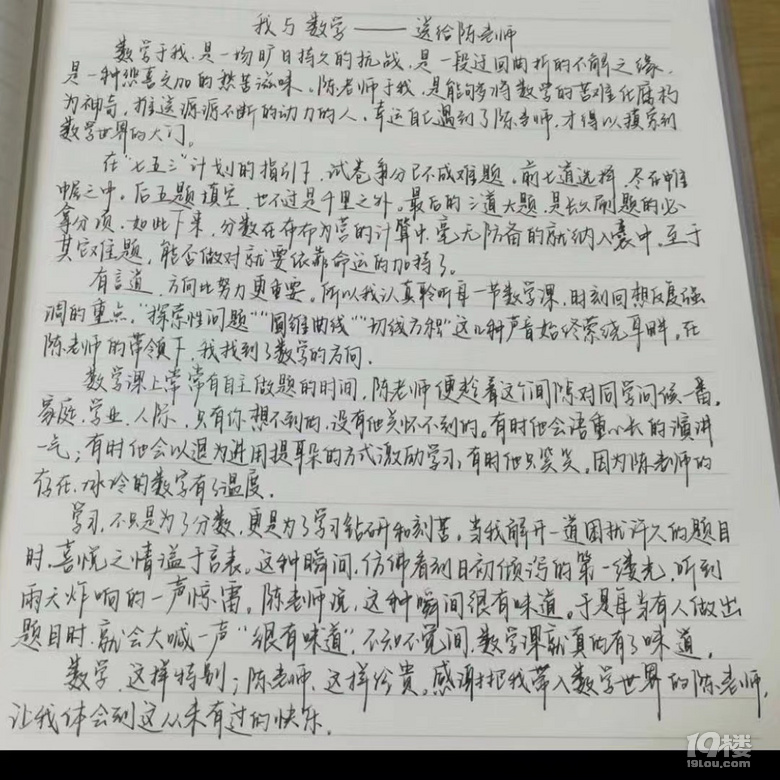 我与数学——送给陈老师
数学于我,是一场旷日持久的抗战,是一段迂回曲折的不解之缘,
是一种悲喜交加的愁苦滋味。陈老师于我,是能够将数学的苦难化腐朽
为神奇,推送源源不断的动力的人。幸运自己遇到了陈老师,才得以摸索到
数学世界的大门。
在“七五三”计划的指引下,试卷争分已不成难题。前七道选择,尽在帷
幄之中。后五题填空,也不过是千里之外。最后的三道大题,是长久刷题的必
拿分项,如此下来,分数在布布为营的计算中,毫无防备的就纳入囊中。至于
其它难题,能否做对就要依靠命运的加持了。
有言道,方向比努力更重要。所以我认真聆听每一节数学课,时刻回想反复强
调的重点,“探索性问题”“圆锥曲线”“切线方程”这几种声音始终萦绕耳畔。在
陈老师的带领下,我找到了数学的方向。
数学课上常常有自主做题的时间,陈老师便趁着这个间隙对同学问候一番。
家庭、学业、人际,只有你想不到的,没有他关怀不到的。有时他会语重心长的演讲
一气;有时他会以退为进用提耳朵的方式激励学习;有时他只笑笑。因为陈老师的
存在,冰冷的数字有了温度。
学习,不只是为了分数,更是为了学习钻研和刻苦。当我解开一道困扰许久的题目
时,喜悦之情溢于言表。这种瞬间,仿佛看到日初倾泻的第一缕光,听到
雨天炸响的一声惊雷。陈老师说,这种瞬间很有味道。于是每当有人做出
题目时,就会大喊一声“很有味道”,不知不觉间,数学课就真的有了味道。
数学,这样特别;陈老师,这样珍贵。感谢把我带入数学世界的陈老师,
让我体会到这从未有过的快乐。
19楼
19lou.com